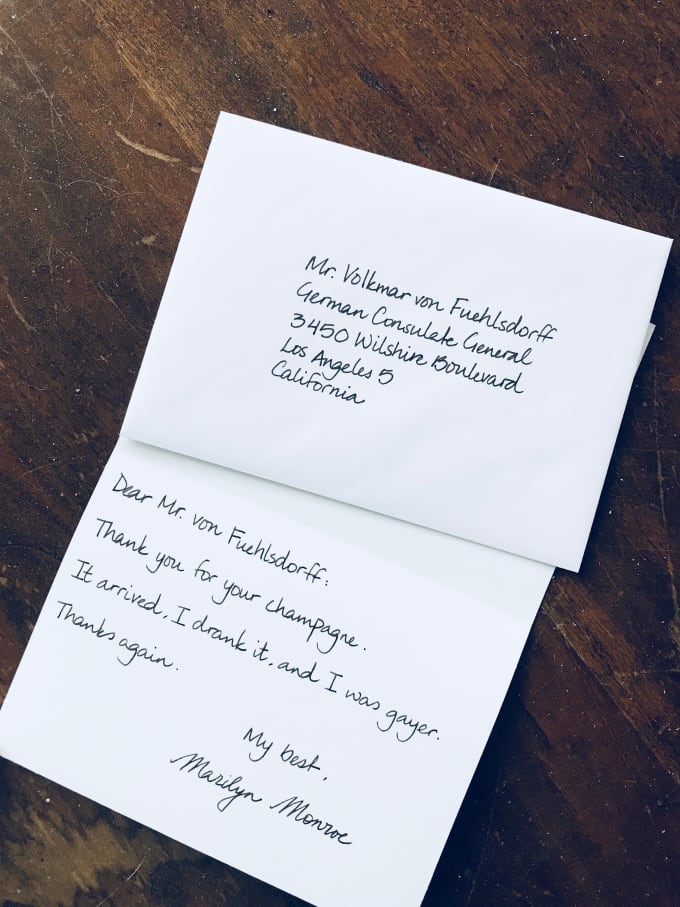 Mr. Volkmar von Fuehlsdorff
German Consulate General
3450 Wilshire Boulevard
Los Angeles 5
California
Dear Mr. von Fuehlsdorff:
Thank you for your champagne.
It arrived, I drank it, and I was gayer.
Thanks again.
My best,
Marilyn Monroe